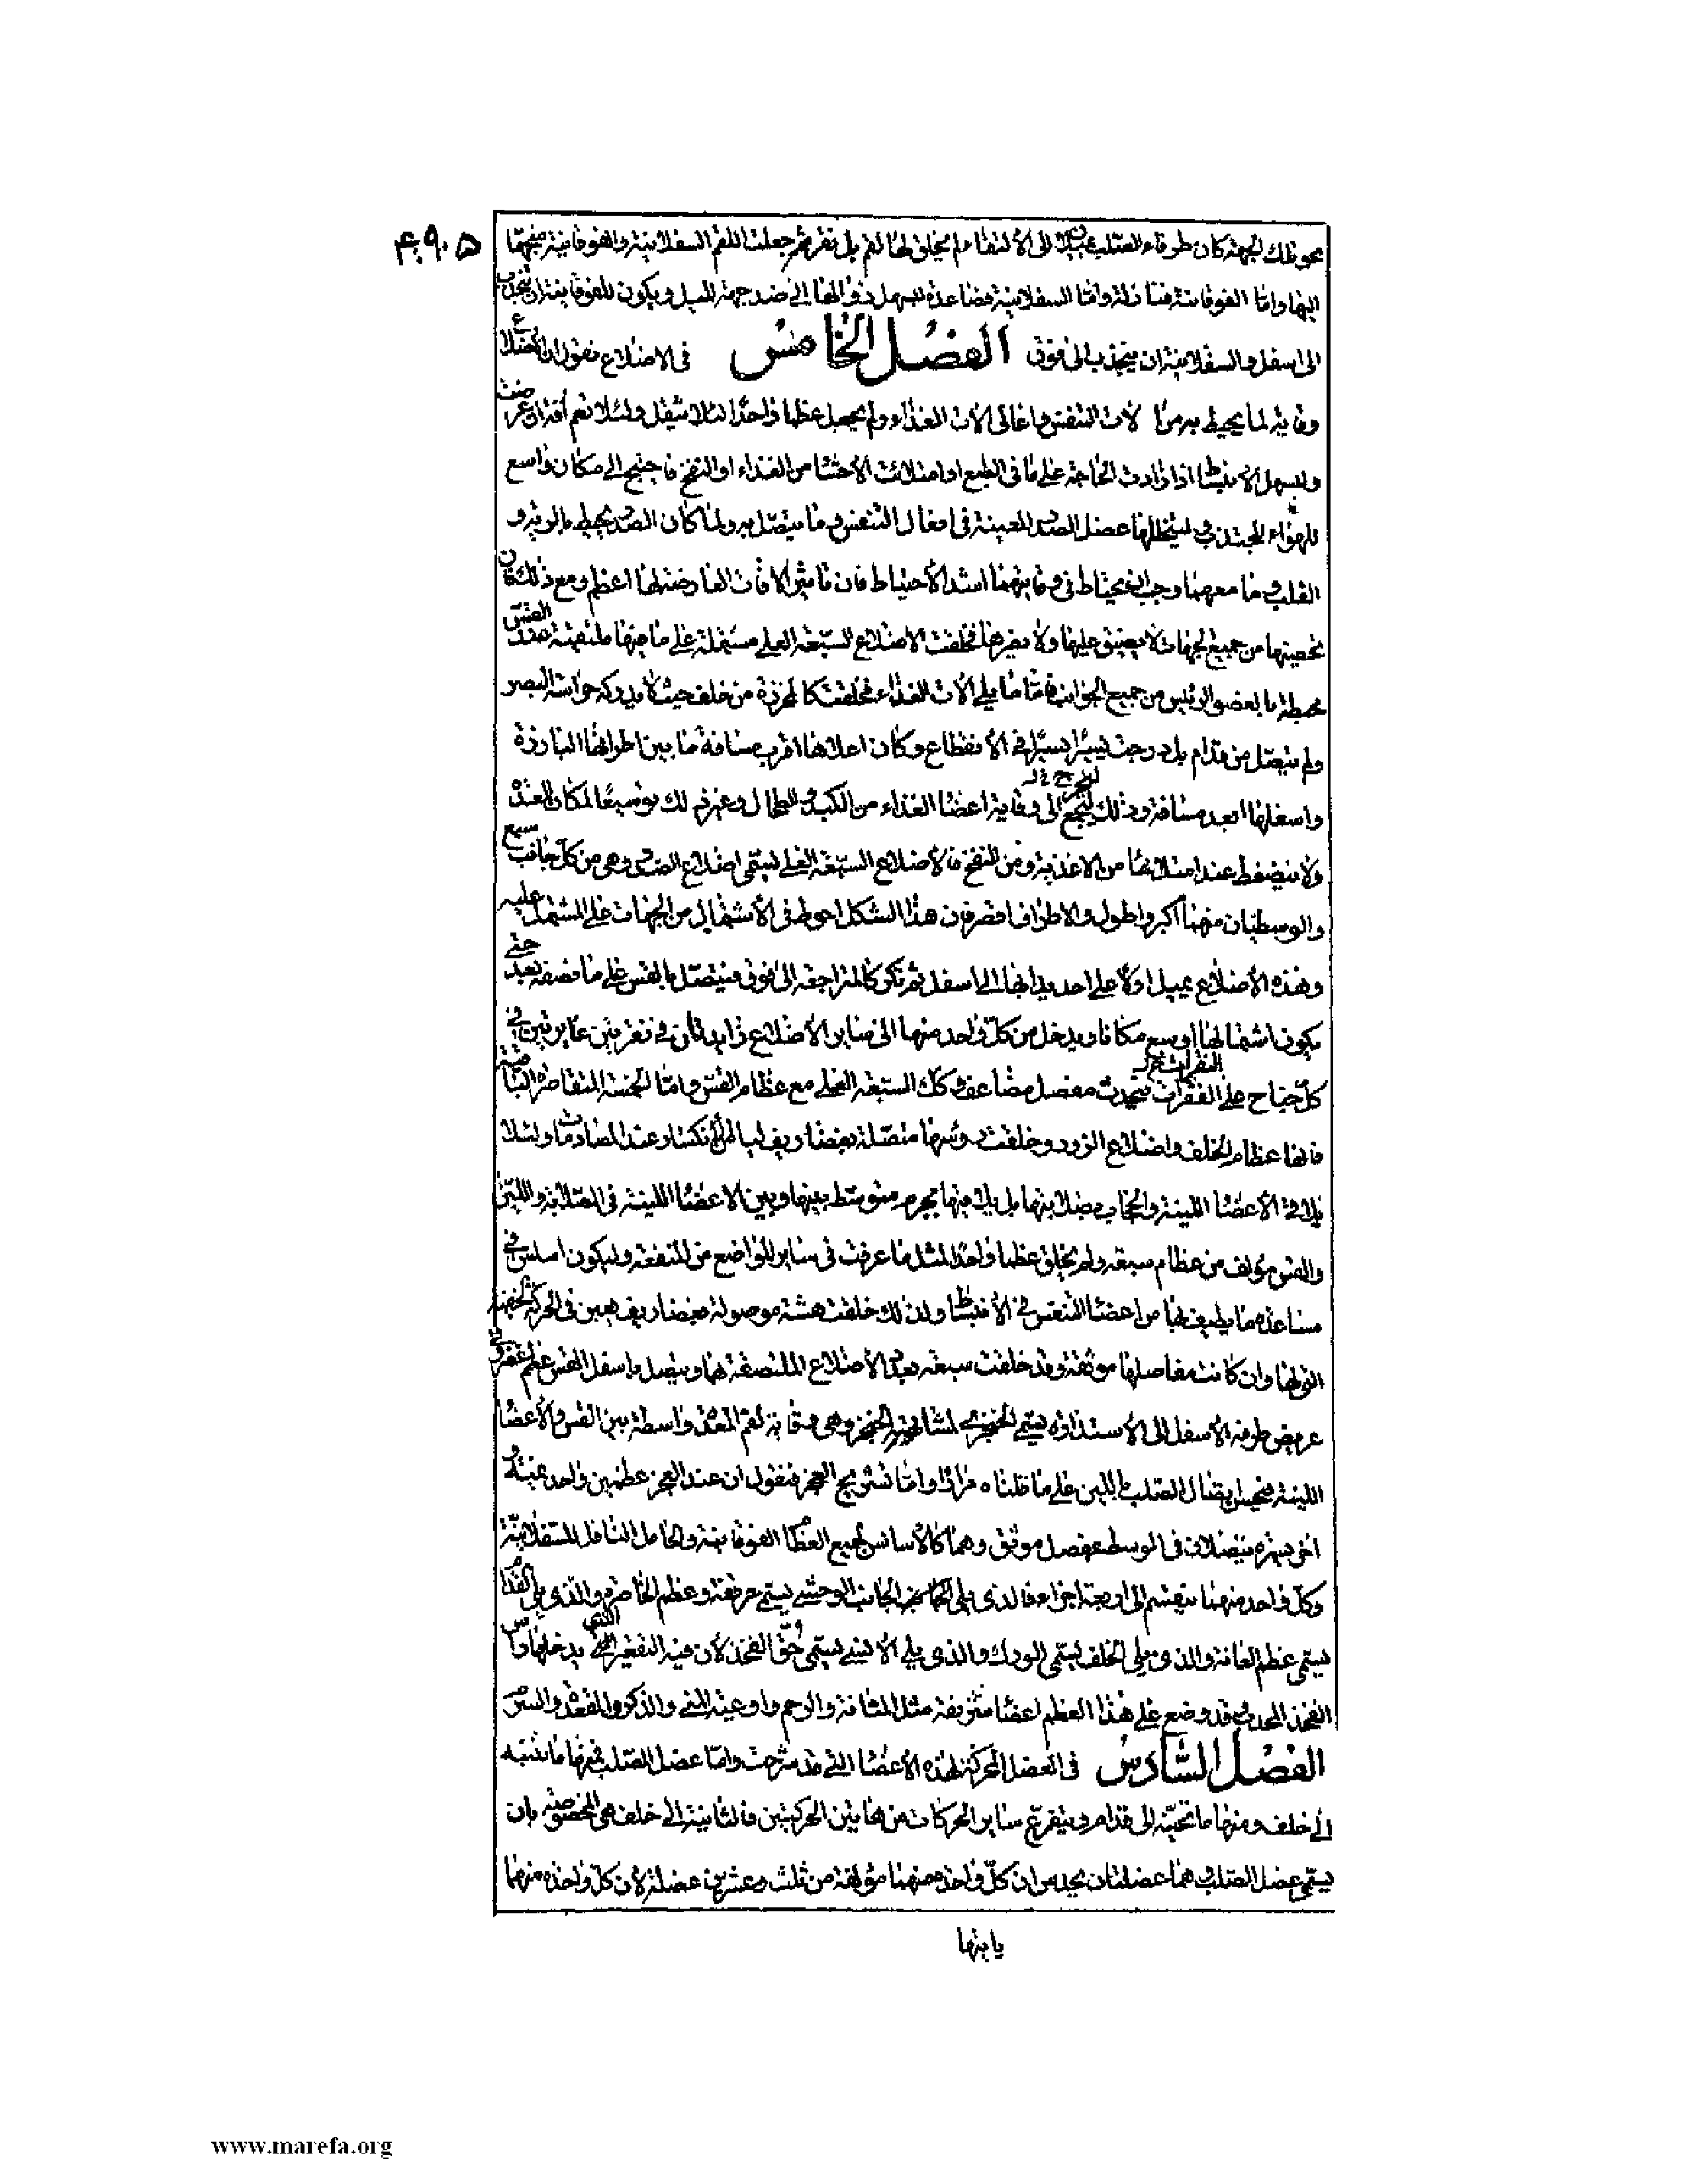 ٤٩٠٥
نحو تلك الجهة كان طرفاء الصلب يميلان الى الالتقاء لم يخلق لها لقم بل نقر ثم جعلت اللقم السفلانية والفوقانية متجهة
اليها واما الفوقانية فنازلة واما السفلانية فصاعدة ليسهل زوالها الى ضد جهة الميل ويكون للفوقانية ان تنجذب
الى اسفل والسفلانية ان ينجذب الى فوق الفصل الخامس فى الاضلاع نقول ان الاضلاع
وقاية لما يحيط به من الات التنفس واعالى الات الغذاء ولم يجعل عظما واحدا لئلا يثقل ولئلا تعم آفة ان عرضت
وليسهل الانبساط اذا زادت الحاجة على ما فى الطبع او امتلات الاحشا من الغذاء او النفخ فاحتيج الى مكان واسع
للهواء المجتذب وليتخللها عضل الصدر المعينة فى افعال التنفس وما يتصل به ولما كان الصدر يحيط بالرية و
القلب وما معهما وجب ان يحتاط فى وقايتهما اشد الاحتياط فان تاثير الافات العارضة لها اعظم ومع ذلك فان
تحصينها من جميع الجهات لا يضيق عليها ولا يضرها فخلقت الاضلاع السبعة العلى مشتملة على ما فيها ملتقية عند القس
محيطة بالعضو الرئيس من جميع الجوانب واما ما يلى الات الغذاء فخلقت كالمحرزة من خلف حيث لا يدركه حراسة البصر
ولم يتصل من قدام بل درجت يسيرا يسيرا فى الانقطاع وكان اعلاها اقرب مسافة ما بين اطرافها البارزة
واسفلها ابعد مسافة وذلك ليجمع الى وقاية اعضا الغذاء من الكبد والطحال وغير ذلك توسيعا لمكان المعدة
ولا ينضغط عند امتلائها من الاغذية ومن النفخ فالاضلاع السبعة العلى يسمى اضلاع الصدر وهى من كل جانب سبع
والوسطيان منها اكبر واطول والاطراف اقصر فان هذا الشكل احوط فى الاشتمال من الجهات على المشتمل عليه
وهذه الاضلاع يميل اولا على احديدابها الى اسفل ثم تكر كالمتراجعة الى فوق فيتصل بالقس على ما نصفه بعد حتى
يكون اشتمالها اوسع مكانا ويدخل من كل واحد منها الى ساير الاضلاع زايدتان فى نقرتين غايرتين فى
كل جناح على الفقرات فيحدث مفصل مضاعف وكذلك السبعة العلى مع عظام القس واما الخمسة المتقاصرة الباقية
فانها عظام الخلف واضلاع الزور وخلقت روسها متصلة بغضاريف ليامن الانكسار عند المصادمات ولئلا
يلاقى الاعضا اللينة والحجاب بصلابتها بل يلاقيها بجرم متوسط بينها وبين الاعضا اللينة فى الصلابة واللين
والقس مؤلف من عظام سبعة ولم يخلق عظما واحدا لمثل ما عرفت فى ساير المواضع من المنفعة وليكون اسلس فى
مساعدة ما يطيف بها من اعضا التنفس فى الانبساط ولذلك خلقت هشة موصولة بغضاريف يعين فى الحركة الخفية
التى لها وان كانت مفاصلها موثقة وقد خلقت سبعة بعدد الاضلاع الملتصقة بها ويتصل باسفل القس عظم غضروفى
عريض طرفه الاسفل الى الاستدارة يسمى الخنجرى لمشابهته الخنجر وهى وقاية لفم المعدة واسطة بين القس والاعضا
اللينة فيحسن اتصال الصلب باللين على ما قلناه مرارا واما تشريح العجز فنقول ان عند العجز عظمين واحد يمنة و
اخر يسرة يتصلان فى الوسط بمفصل موثق وهما كالاساس لجميع العظام الفوقانية والحامل الناقل للسفلانية
وكل واحد منهما ينقسم الى اربعة اجزاء فالذى يلى الجانب الوحشى يسمى حرقفة وعظم الخاصرة والذى يلى القدام
يسمى عظم العانة والذى يلى الخلف يسمى الورك والذى يلى الانسى يسمى حق الفخذ لان فيه التقعير الذى يدخلها راس
الفخذ المحدب وقد وضع على هذا العظم اعضا شريفة مثل المثانة والرحم واوعية المنى والذكر والمقعدة والسرم
الفصل السادس فى العضل المحركة لهذه الاعضا التى قد شرحت واما عضل الصلب فمنها ما يثنيه
الى خلف ومنها ما تحنيه الى قدام ويتفرع ساير الحركات من هاتين الحركتين فالثانية الى خلف هى المخصوصة بان
يسمى عضل الصلب وهما عضلتان يحدس ان كل واحدة منهما مؤلفة من ثلث وعشرين عضلة لان كل واحدة منهما
ياتيها
www.marefa.org